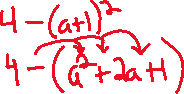 4 - (a+1)²
4 - (a² + 2a + 1)